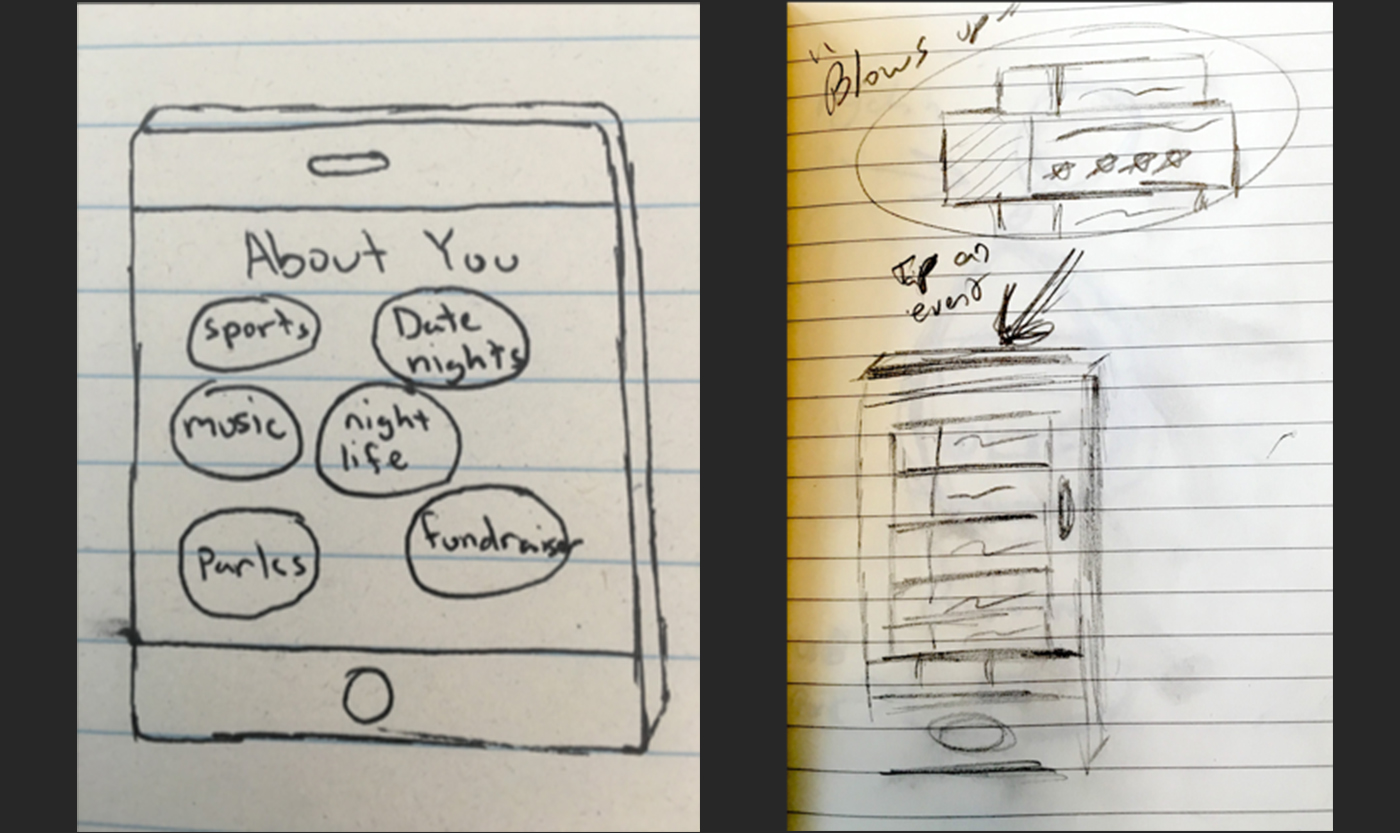 About You
sports
Date
nights
music
night
life
Parks
fundraiser
"Blows up"
Tap on
event